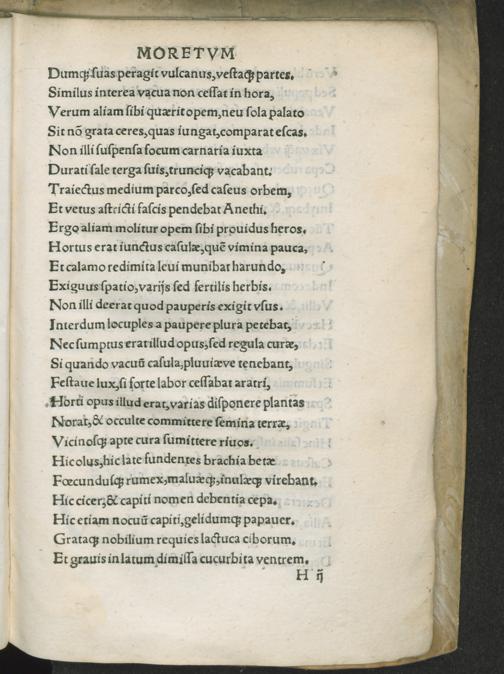 MORETVM
Dumqꝫ suas peragit vulcanus, vestaqꝫ partes.
Similus interea vacua non cessat in hora,
Verum aliam sibi quærit opem, neu sola palato
Sit nõ grata ceres, quas iungat, comparat escas.
Non illi suspensa focum carnaria iuxta
Durati sale terga suis, trunciqꝫ vacabant.
Traiectus medium parco, sed caseus orbem,
Et vetus astricti fascis pendebat Anethi.
Ergo aliam molitur opem sibi prouidus heros.
Hortus erat iunctus casulæ, quẽ vimina pauca,
Et calamo redimita leui munibat harundo,
Exiguus spatio, varijs sed fertilis herbis.
Non illi deerat quod pauperis exigit vsus.
Interdum locuples a paupere plura petebat,
Nec sumptus erat illud opus, sed regula curæ,
Si quando vacuũ casula, pluuiæve tenebant,
Festaue lux, si forte labor cessabat aratri,
Horti opus illud erat, varias disponere plantas
Norat, & occulte committere semina terræ,
Vicinosqꝫ apte cura sumittere riuos.
Hic olus, hic late fundentes brachia betæ
Fœcundusqꝫ rumex, maluæqꝫ, inulæqꝫ virebant.
Hic cicer, & capiti nomen debentia cepa.
Hic etiam nocuũ capiti, gelidumqꝫ papauer.
Grataqꝫ nobilium requies lactuca ciborum.
Et grauis in latum dimissa cucurbita ventrem.
H ij